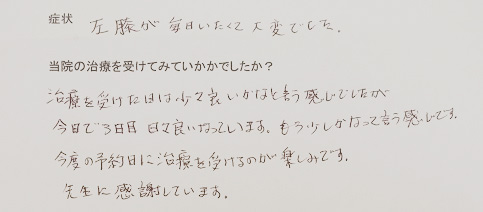 症状 左膝が毎日いたくて大変でした。
当院の治療を受けてみていかかでしたか？
治療を受けた日は少々良いかなと言う感じでしたが
今日で3日目 日々良いなっています。もう少しかなって言う感じです。
今度の予約日に治療を受けるのが楽しみです。
先生に感謝しています。